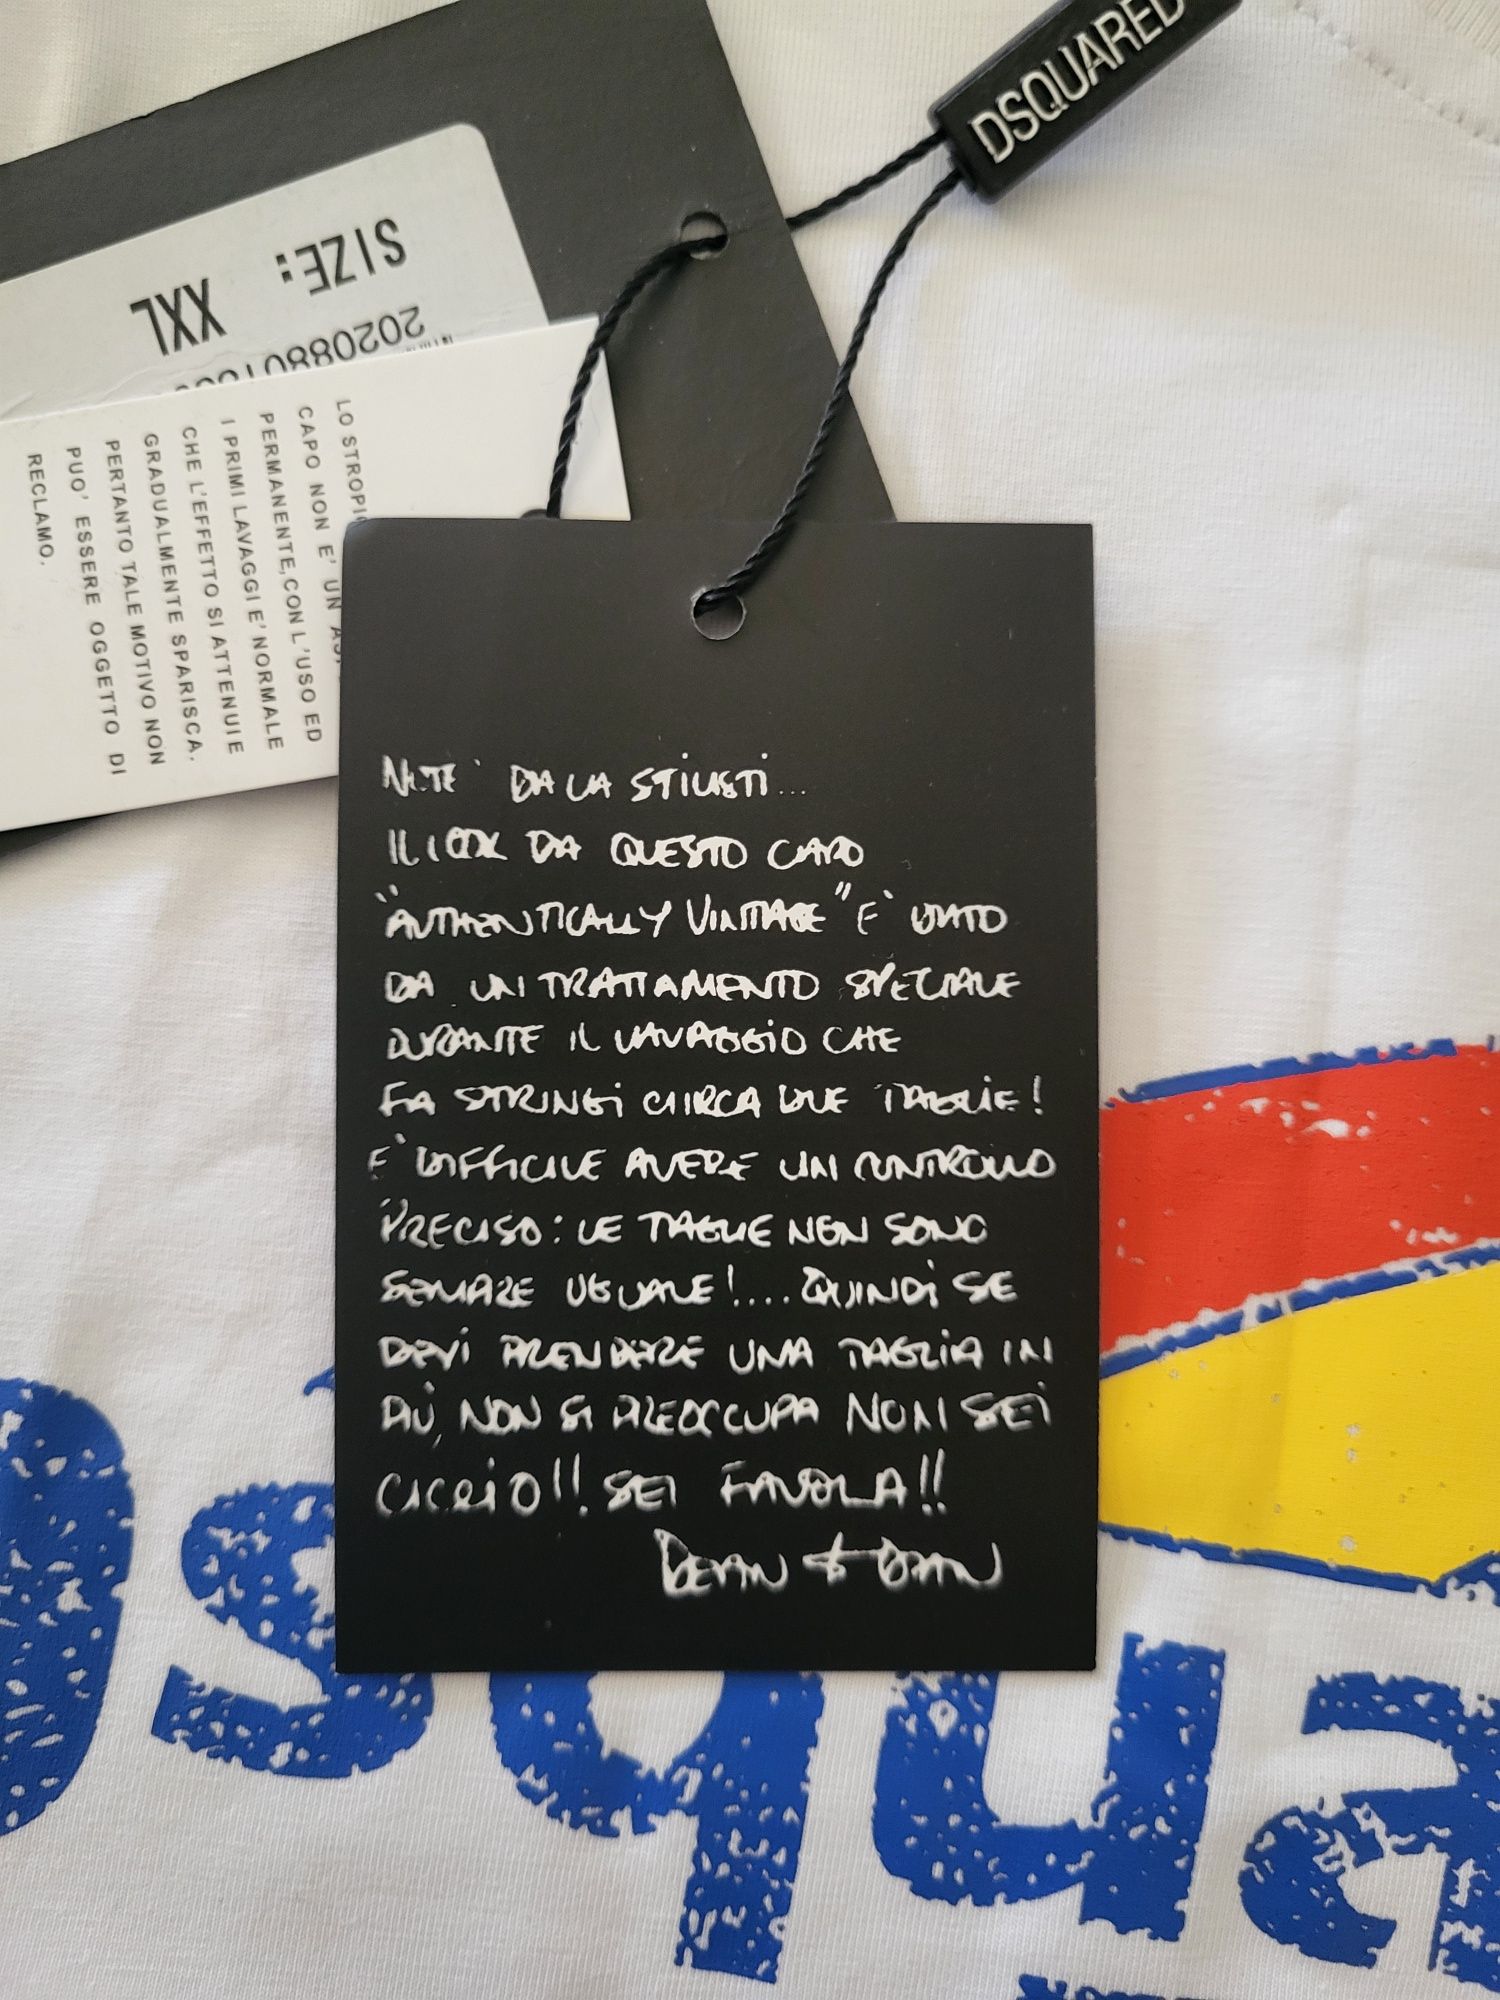 DSQUARED
SIZE: XXL
LO STROPIC
CAPO NON E' UN
PERMANENTE, CON L'USO ED
I PRIMI LAVAGGI E' NORMALE
CHE L'EFFETTO SI ATTENUI E
GRADUALMENTE SPARISCA.
PERTANTO TALE MOTIVO NON
PUO' ESSERE OGGETTO DI
RECLAMO.
NOTE DA LA STILISTI...
IL LOOK DA QUESTO CAPO
"AUTHENTICALLY VINTAGE" E' DATO
DA UN TRATTAMENTO SPECIALE
DURANTE IL LAVAGGIO CHE
FA STRINGI CIIRCA DUE TAGLIE!
E' DIFFICILE AVERE UN CONTROLLO
PRECISO: LE TAGLIE NON SONO
SEMPRE UGUALE!....QUINDI SE
DEVI PRENDERE UNA TAGLIA IN
PIÙ, NON SI PREOCCUPA NON SEI
CICCIO!! SEI FAVOLA!!
DEAN & DAN
Dsqua